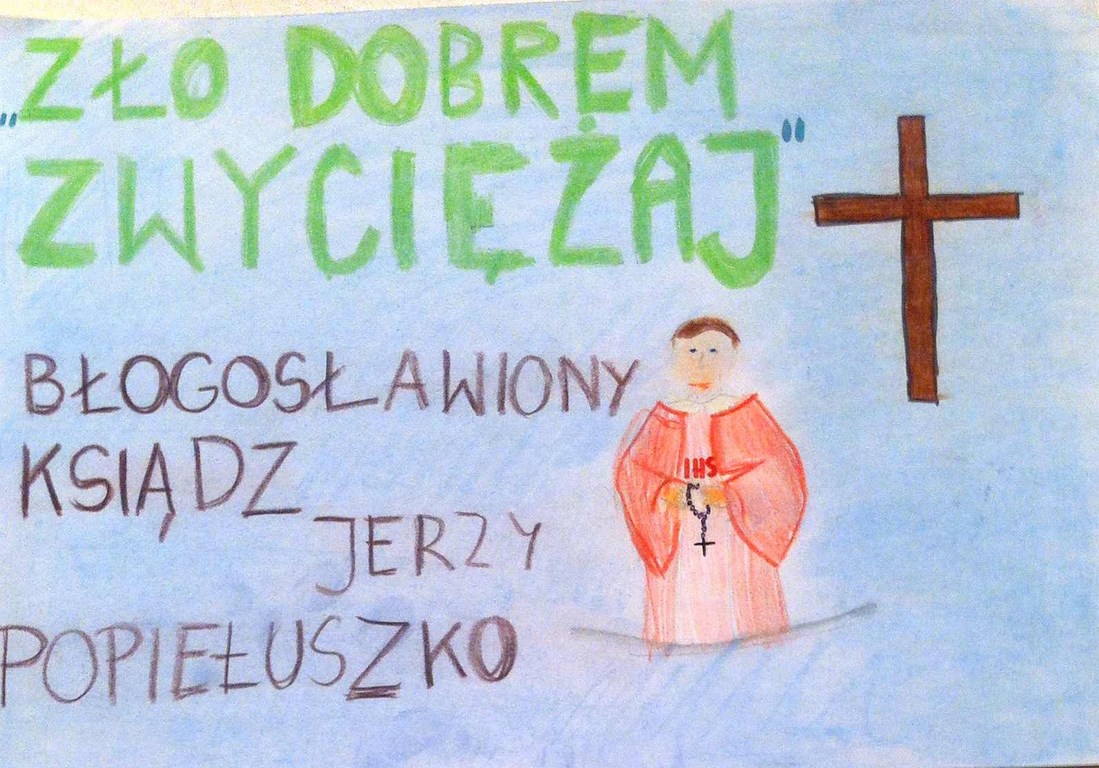 „ZŁO DOBREM
ZWYCIĘŻAJ"
BŁOGOSŁAWIONY
KSIĄDZ
JERZY
POPIEŁUSZKO
IHS